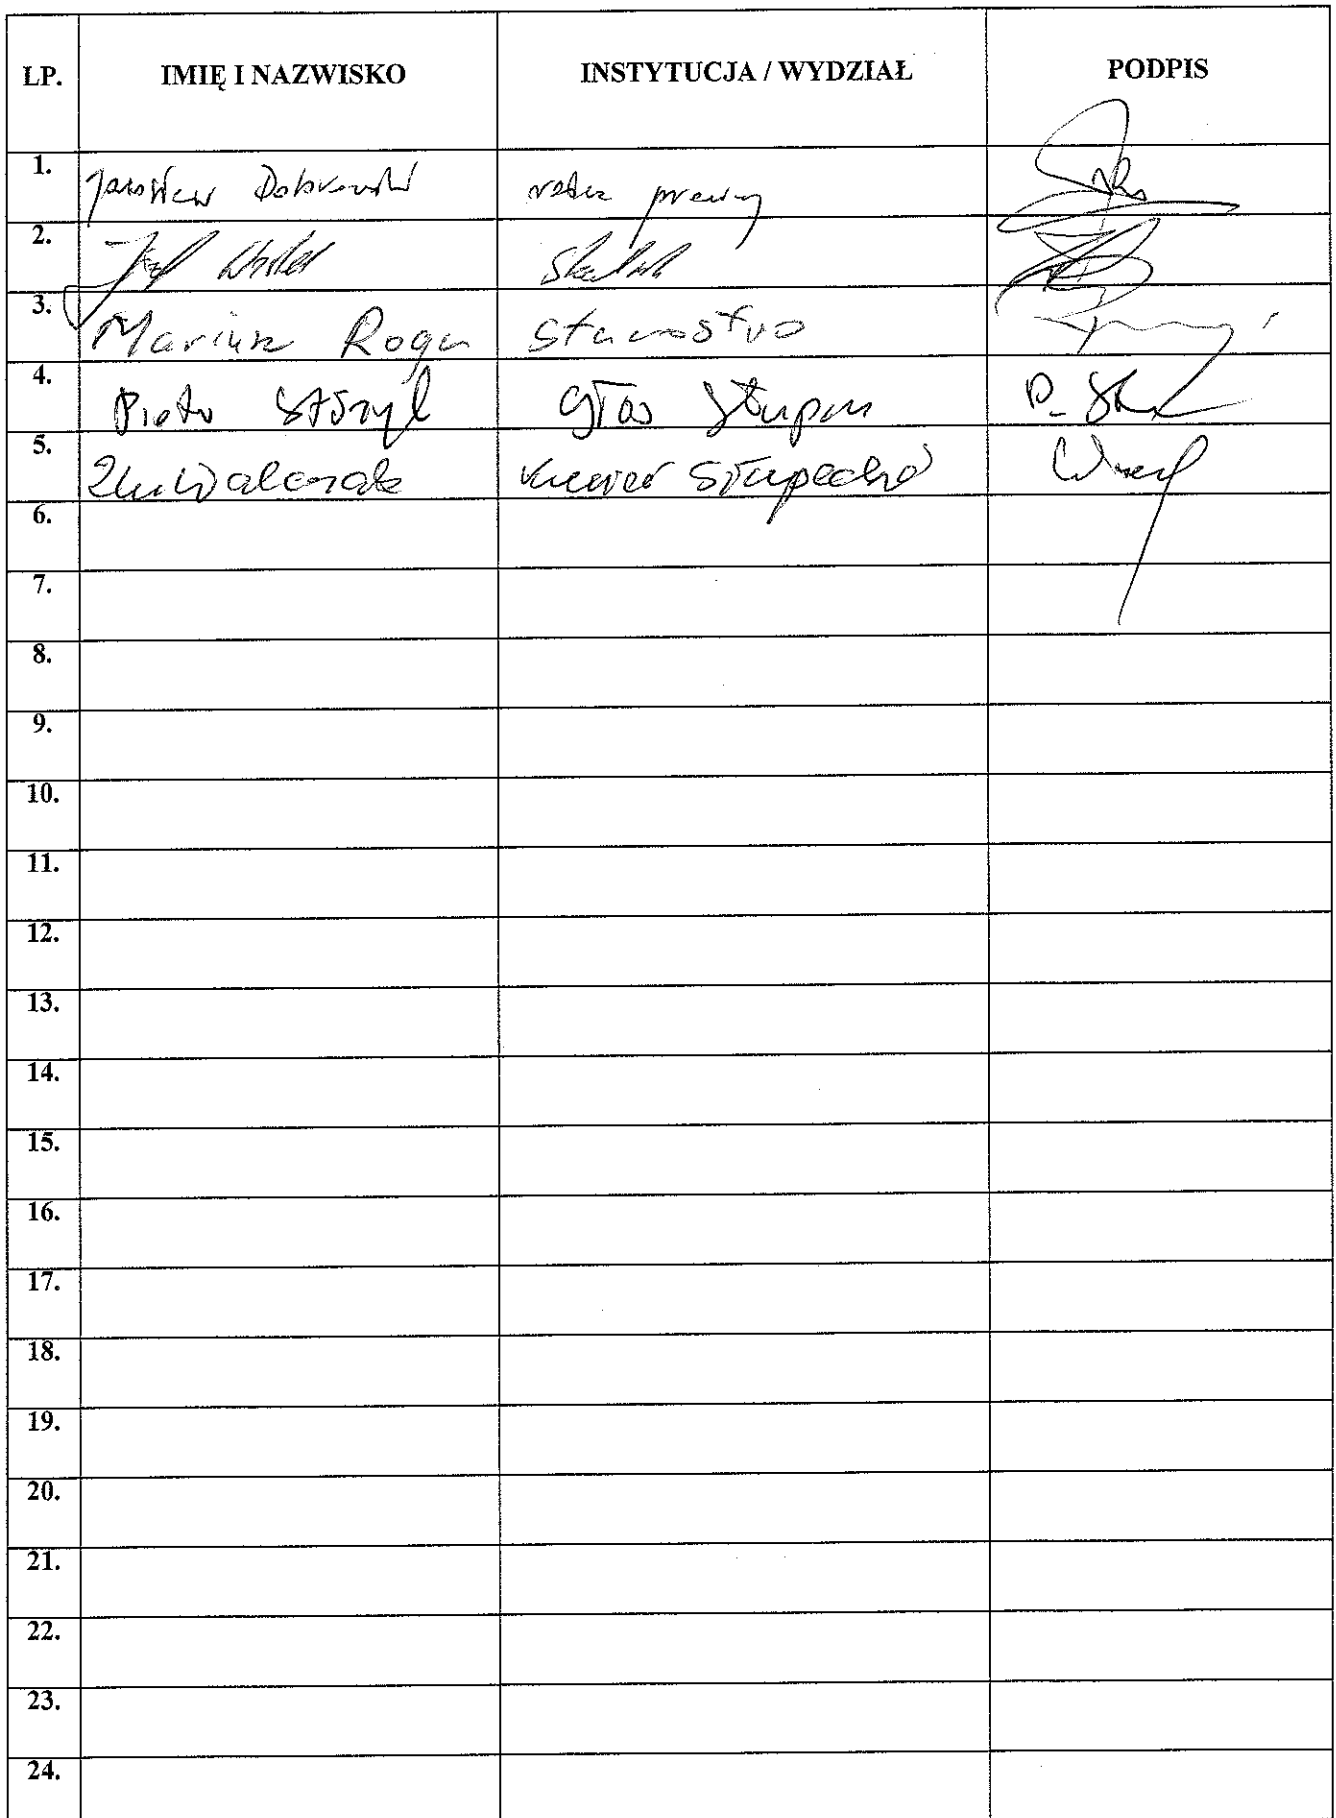 LP. IMIĘ I NAZWISKO INSTYTUCJA / WYDZIAŁ PODPIS
1. Jarosław Dobrowolski radca prawny
2. Józef
3. Mariusz Roga Starostwo
4. Piotr Głos Słupcy P.
5. Walczak Kurier Słupecki
6.
7.
8.
9.
10.
11.
12.
13.
14.
15.
16.
17.
18.
19.
20.
21.
22.
23.
24.